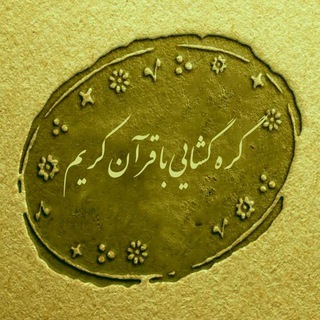 گره گشایی با قرآن کریم